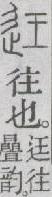 迋往也。
迋往
疊韵。